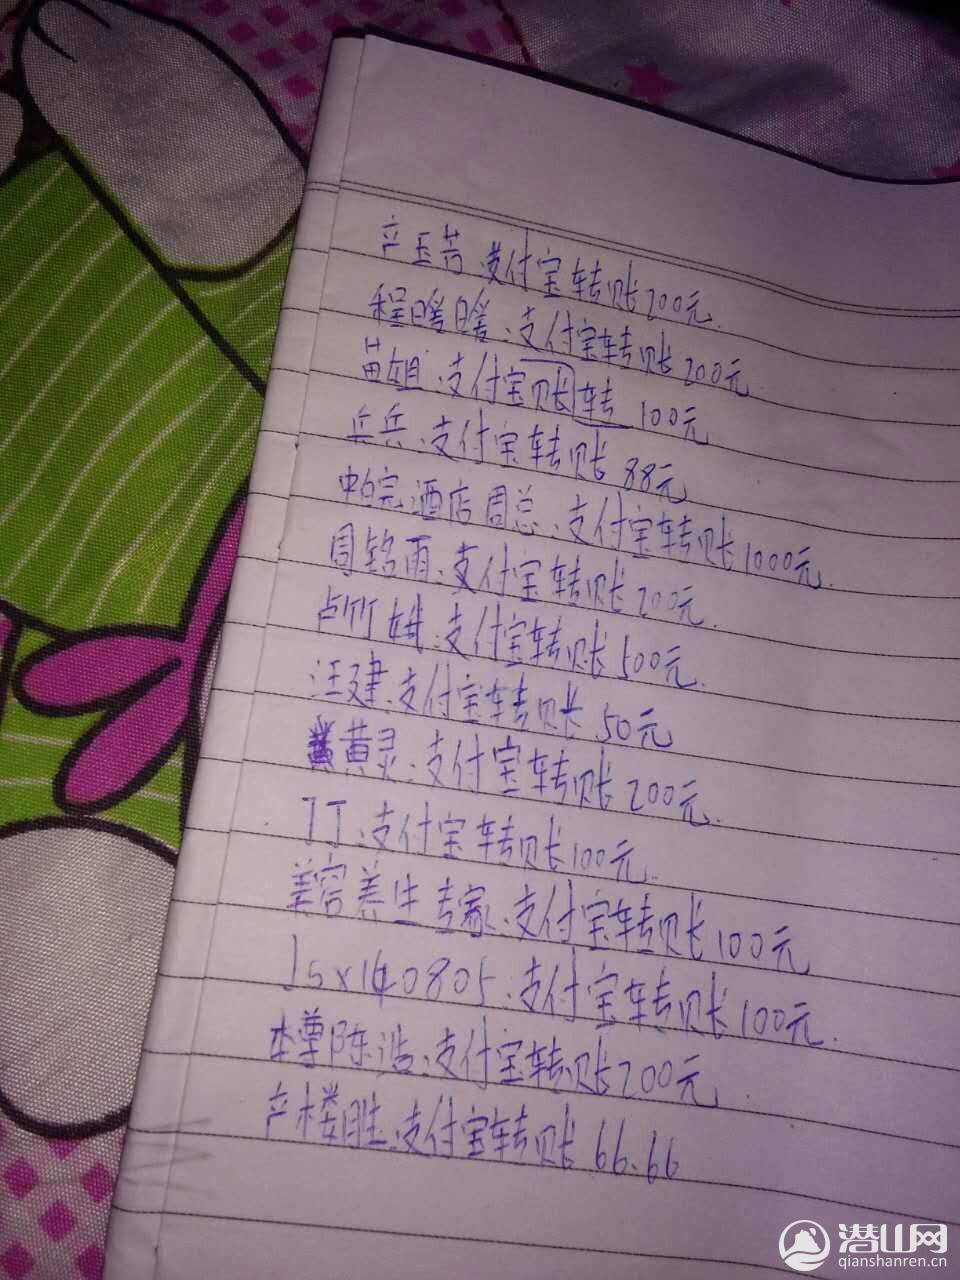 产玉芳 支付宝转账200元.
程暖暖.支付宝转账 200元
苗姐.支付宝账转 100元
兵兵.支付宝转账 88元
中皖酒店周总.支付宝转账1000元.
周铭雨.支付宝转账200元.
支付宝转账500元.
汪建.支付宝转账 50元
黄灵.支付宝转账200元.
丁丁.支付宝转账100元.
美容养生专家.支付宝转账100元
支付宝转账100元.
本尊陈浩.支付宝转账200元
产楼胜.支付宝转账 66.66
潜山网
qianshanren.cn